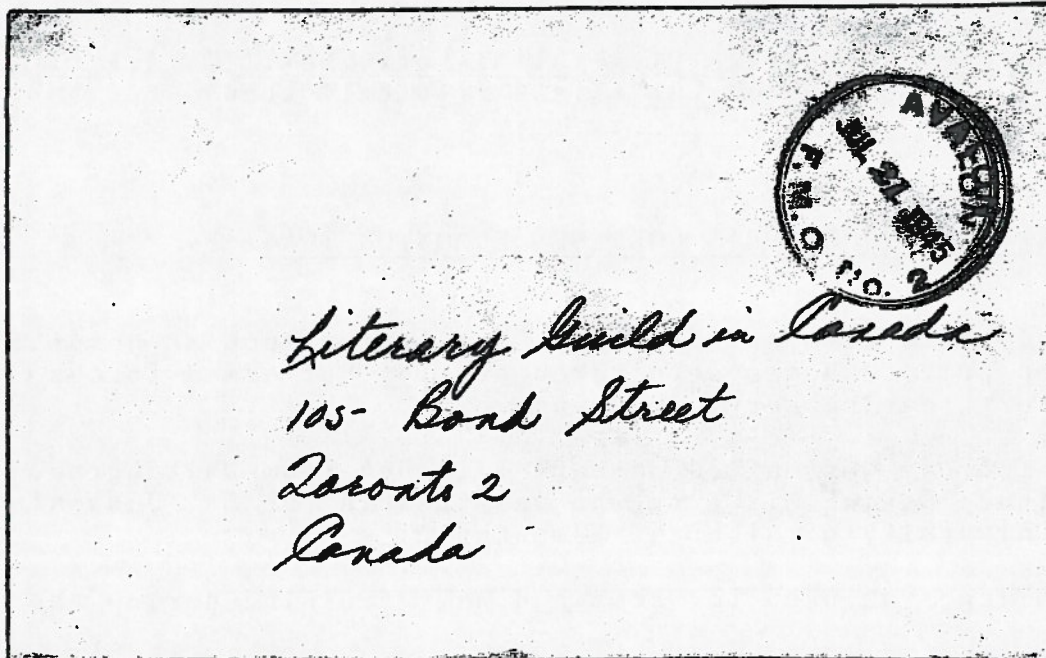 AVALON
JUL 27 1945
F.M.O NO. 2
Literary Guild in Canada
105 Bond Street
Toronto 2
Canada